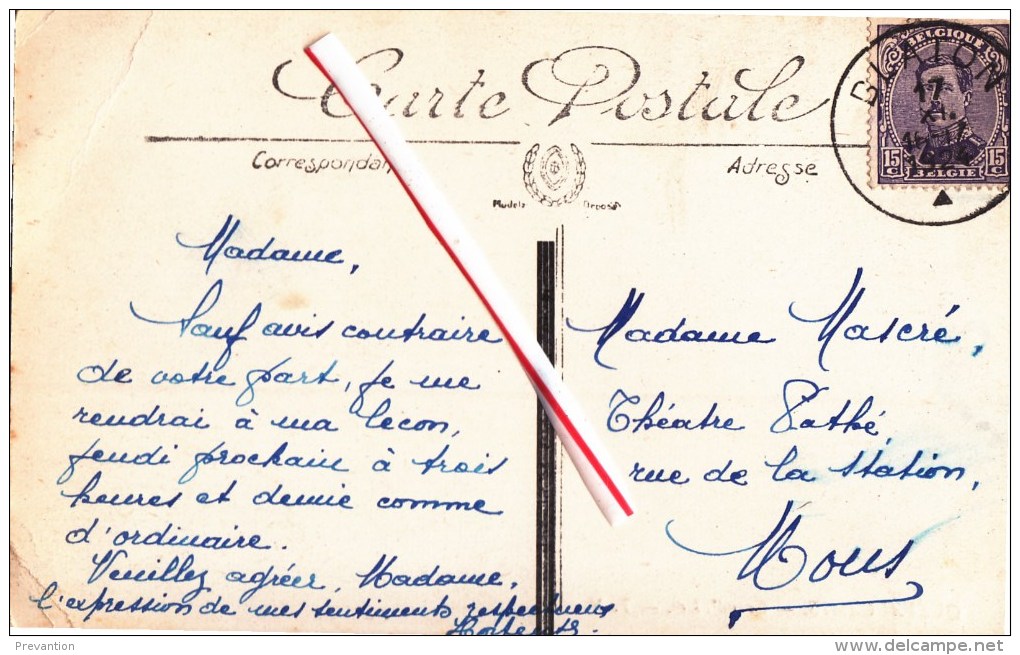 Carte Postale
Correspondan
Adresse
BELGIQUE
15 C
15 C
BELGIE
BLATON
17
XI
Madame,
Sauf avis contraire
de votre part, je me
rendrai à ma lecon,
jeudi prochain à trois
heures et demie comme
d'ordinaire.
Veuillez agréer, Madame,
l'expression de mes sentiments respectueux
Madame Mascré,
Théatre Pathé,
rue de la Station,
Mons
Prevantion
delcampe.net